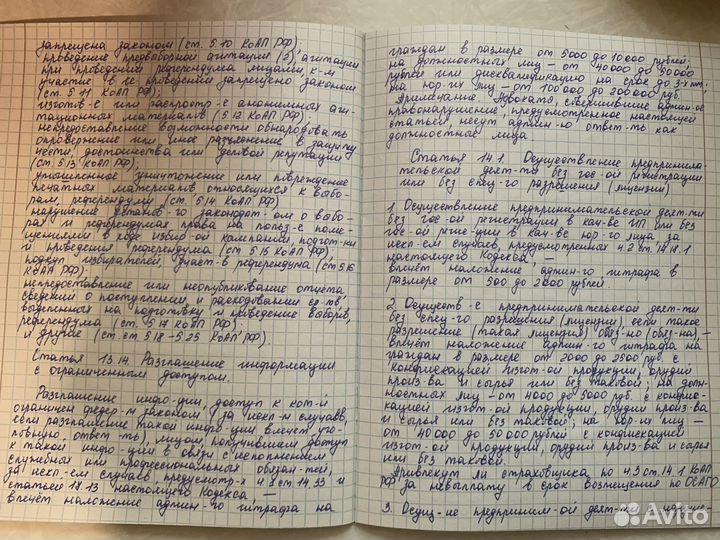 запрещена законом (ст. 5.10 КоАП РФ),
проведение предвыборной агитации (2), агитации
при проведении референдума лицами, к-м
участие в её проведении запрещено законом
(ст. 5.11 КоАП РФ);
изготов-е или распростр-е анонимных аги-
тационных материалов (5.12 КоАП РФ);
непредоставление возможности обнародовать
опровержение или иное разъяснение в защиту
чести, достоинства или деловой репутации
(ст. 5.13 КоАП РФ);
умышленное уничтожение или повреждение
печатных материалов относящихся к выбо-
рам, референдуму (ст. 5.14 КоАП РФ)
нарушение установ-го законодат-ом о выбо-
рах и референдумах права на польз-е поме-
щениями в ходе избир-ой кампании, подгот-ки
и проведения референдума (ст. 5.15 КоАП РФ);
подкуп избирателей, участ-в референдума (ст. 5.16
КоАП РФ)
непредоставление или неопубликование отчета
сведений о поступлении и расходовании ср-тв,
выделенных на подготовку и проведение выборов,
референдума (ст. 5.17 КоАП РФ);
и другие (ст. ст. 5.18-5.25 КоАП РФ)
Статья 13.14. Разглашение информации
с ограниченным доступом.
Разглашение инфо-ции, доступ к кот-й
ограничен федер-м законом (за искл-м случаев,
если разглашение такой инфо-ции влечет уго-
ловную ответ-ть), лицом, получившим доступ
к такой инфо-ции в связи с исполнением
служебных или профессиональных обязан-тей,
за искл-ем случаев, предусмотр-х ч.1 ст. 14.33 и
статьей 17.13 настоящего Кодекса, —
влечёт наложение админ-го штрафа на
граждан в размере от 5000 до 10000 рублей;
на должностных лиц - от 40000 до 50000
рублей или дисквалификацию на срок до 3-х лет;
на юр-их лиц - от 100000 до 200000 руб.
Примечание. Адвокаты, совершившие админ-ое
правонарушение, предусмотренное настоящей
статьей, несут админ-ую ответ-ть как
должностные лица
Статья 14.1. Осуществление предпринима-
тельской деят-ти без гос-ой регистрации
или без спец-го разрешения (лицензии)
1. Осуществление предпринимательской деят-ти
без гос-ой регистрации в кач-ве ИП или без
гос-ой реги-ции в кач-ве юр-го лица за
искл-ем случаев, предусмотренных ч.2 ст. 14.17.1
настоящего Кодекса, —
влечёт наложение админ-го штрафа в
размере от 500 до 2000 рублей.
2. Осуществ-е предпринимательской деят-ти
без спец-го разрешения (лицензии), если такое
разрешение (такая лицензия) обяз-но (обяз-на), —
влечёт наложение админ-го штрафа на
граждан в размере от 2000 до 2500 руб. с
конфискацией изгот-ой продукции, орудий
произ-ва и сырья или без таковой; на долж-
ностных лиц - от 4000 до 5000 руб. с конфис-
кацией изгот-ой продукции, орудий произ-ва
и сырья или без таковой; на юр-их лиц —
от 40000 до 50000 рублей с конфискацией
изгот-ой продукции, орудий произ-ва и сырья
или без таковой.
Привлекут ли страховщика по ч.3 ст. 14.1 КоАП
РФ за невыплату в срок возмещения по ОСАГО
3. Осущ-ие предприним-ой деят-ти с
Avito